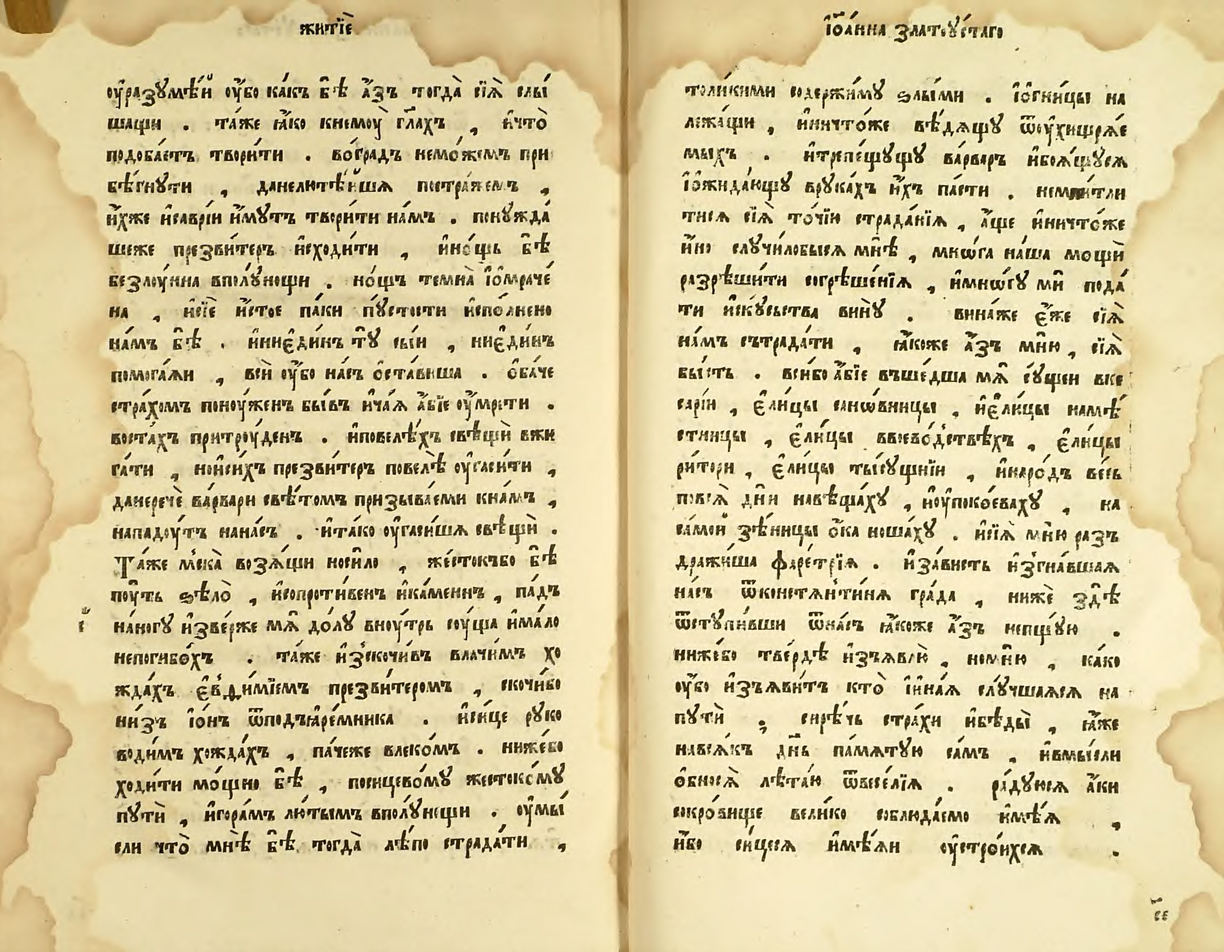 житїѐ
ᲂу҆разꙋмѣ́й ᲂу҆́бо ка́къ бѣ̀ а҆́зъ тогда̀ сїѧ̀ слы́
шащи . та́же ꙗ҆́ко кнемоу̀ гл҃ахъ , и҆что̀
подоба́етъ твори́ти . во́градъ немо́жемъ при
бѣ́гнути , данелю́тѣйшѧ постра́жемъ ,
и҆́хже и҆са́врїи и҆́мутъ твори́ти на́мъ . понужда́
шеже презви́теръ и҆сходи́ти , и҆но́щь бѣ̀
безлоу́нна вполꙋ́нощи . но́щъ темна̀ і҆ѡ҆мраче́
на , и҆сїѐ и҆́стое па́ки пꙋ́стости и҆спо́лнено
на́мъ бѣ̀ . и҆ниє҆ди́нъ тꙋ̀ сы́и , ниє҆ди́нъ
помога́ѧи , всѝ ᲂу҆́бо на́съ ѡ҆ста́виша . ѻ҆ба́че
стра́хомъ поноу́женъ бы́въ и҆ча́ѧ а҆́бїе ᲂу҆мрѣ́ти .
воста́хъ притроу́денъ . и҆повелѣ́хъ свѣщѝ вжи
га́ти , но́и҆си́хъ презви́теръ повелѣ̀ ᲂу҆гаси́ти ,
данеречѐ ва́рвари свѣ́томъ призыва́еми кна́мъ ,
нападоу́тъ нана́съ . и҆та́ко ᲂу҆гаси́шѧ свѣщѝ .
Та́же мска̀ возѧ́щи носи́ло , же́стокъбо бѣ̀
поу́ть ѕѣлѡ̀ , и҆сопроти́венъ и҆ка́менинъ , па́дъ
наногꙋ̀ и҆зве́рже мѧ̀ до́лу вноу́трь соу́ща и҆ма́ло
непогибо́хъ . та́же и҆зскочи́въ влачи́мъ хо
жда́хъ є҆ѵвѳи́мїемъ презви́теромъ , скочи́бо
ни́зъ і҆ѻ́нъ ѿподъꙗ҆ре́мника . и҆си́це руко
води́мъ хожда́хъ , па́чеже влеко́мъ . ни́жебо
ходи́ти мо́щно бѣ̀ , посицево́мꙋ жестоко́мꙋ
путѝ , и҆гора́мъ лю́тымъ вполꙋ́нощи . ᲂу҆мы́
сли что̀ мнѣ̀ бѣ̀ тогда̀ лѣ́по страда́ти ,
і҆ѡа́нна златоꙋ́стаго
толи́кими содержи́мꙋ ѕлы́ми . і҆о҆гни́цы на
лежа́щи , и҆ничто́же вѣ́дѧщꙋ ѿᲂу҆хищрѧ́е
мыхъ . и҆трепе́щущꙋ ва́рваръ и҆боѧ́щꙋсѧ
і҆ѡ҆жида́ющꙋ врука́хъ и҆́хъ па́сти . немни́тли
тисѧ сїѧ̀ то́чїю страда́нїѧ , а҆́ще и҆ничто́же
и҆́но случи́лобысѧ мнѣ̀ , мнѡ́га на́ша мощѝ
разрѣши́ти согрѣше́нїѧ , и҆мно́гꙋ мѝ пода́
ти и҆скꙋ́сьства винꙋ̀ . вина́же є҆́же сїѧ̀
на́мъ състрада́ти , ꙗ҆́коже а҆́зъ мню̀ , сїѧ̀
бы́сть . всибо а҆́бїе въше́дша мѧ̀ сꙋ́щеи вке
сарі́и , є҆ли́цы санѡ́вницы , и҆є҆ли́цы намѣ́
стницы , є҆ли́цы ввоево́дствѣхъ , є҆ли́цы
ри́тори , є҆ли́цы ты́сꙋщнїи , и҆наро́дъ ве́сь
повсѧ̀ дни̑ навѣща́хꙋ , и҆оу҆поко́евахꙋ , на
само́й зѣ́ницы ѻ҆́ка ноша́хꙋ . и҆сїѧ̀ мню̀ раз
дражи́ша фаре́трїѧ . и҆за́висть и҆згна́вшаѧ
на́съ ѿконстѧнти́нѧ гра́да , ни́же здѣ̀
ѿстꙋпи́вши ѿна́съ ꙗ҆́коже а҆́зъ непщꙋ́ю .
ни́жебо тве́рдѣ и҆зъꙗвлю̀ , номню̀ , ка́ко
ᲂу҆́бо и҆зъꙗви́тъ кто̀ і҆и҆на́ѧ слꙋ́чшаѧсѧ на
путѝ ; си́рѣчь стра́хи и҆бѣды̀ , ꙗ҆̀же
навсѧ́къ дн҃ь па́мѧтꙋю са́мъ , и҆вмы́сли
ѻ҆бносѧ̀ лѣ́таю ѿвесе́лїѧ . ра́дꙋюсѧ а҆́ки
сокро́вище вели́ко соблюда́емо и҆мѣ́ѧ ,
и҆́бо си́цесѧ и҆мѣ́ѧи ᲂу҆стро́ихсѧ .